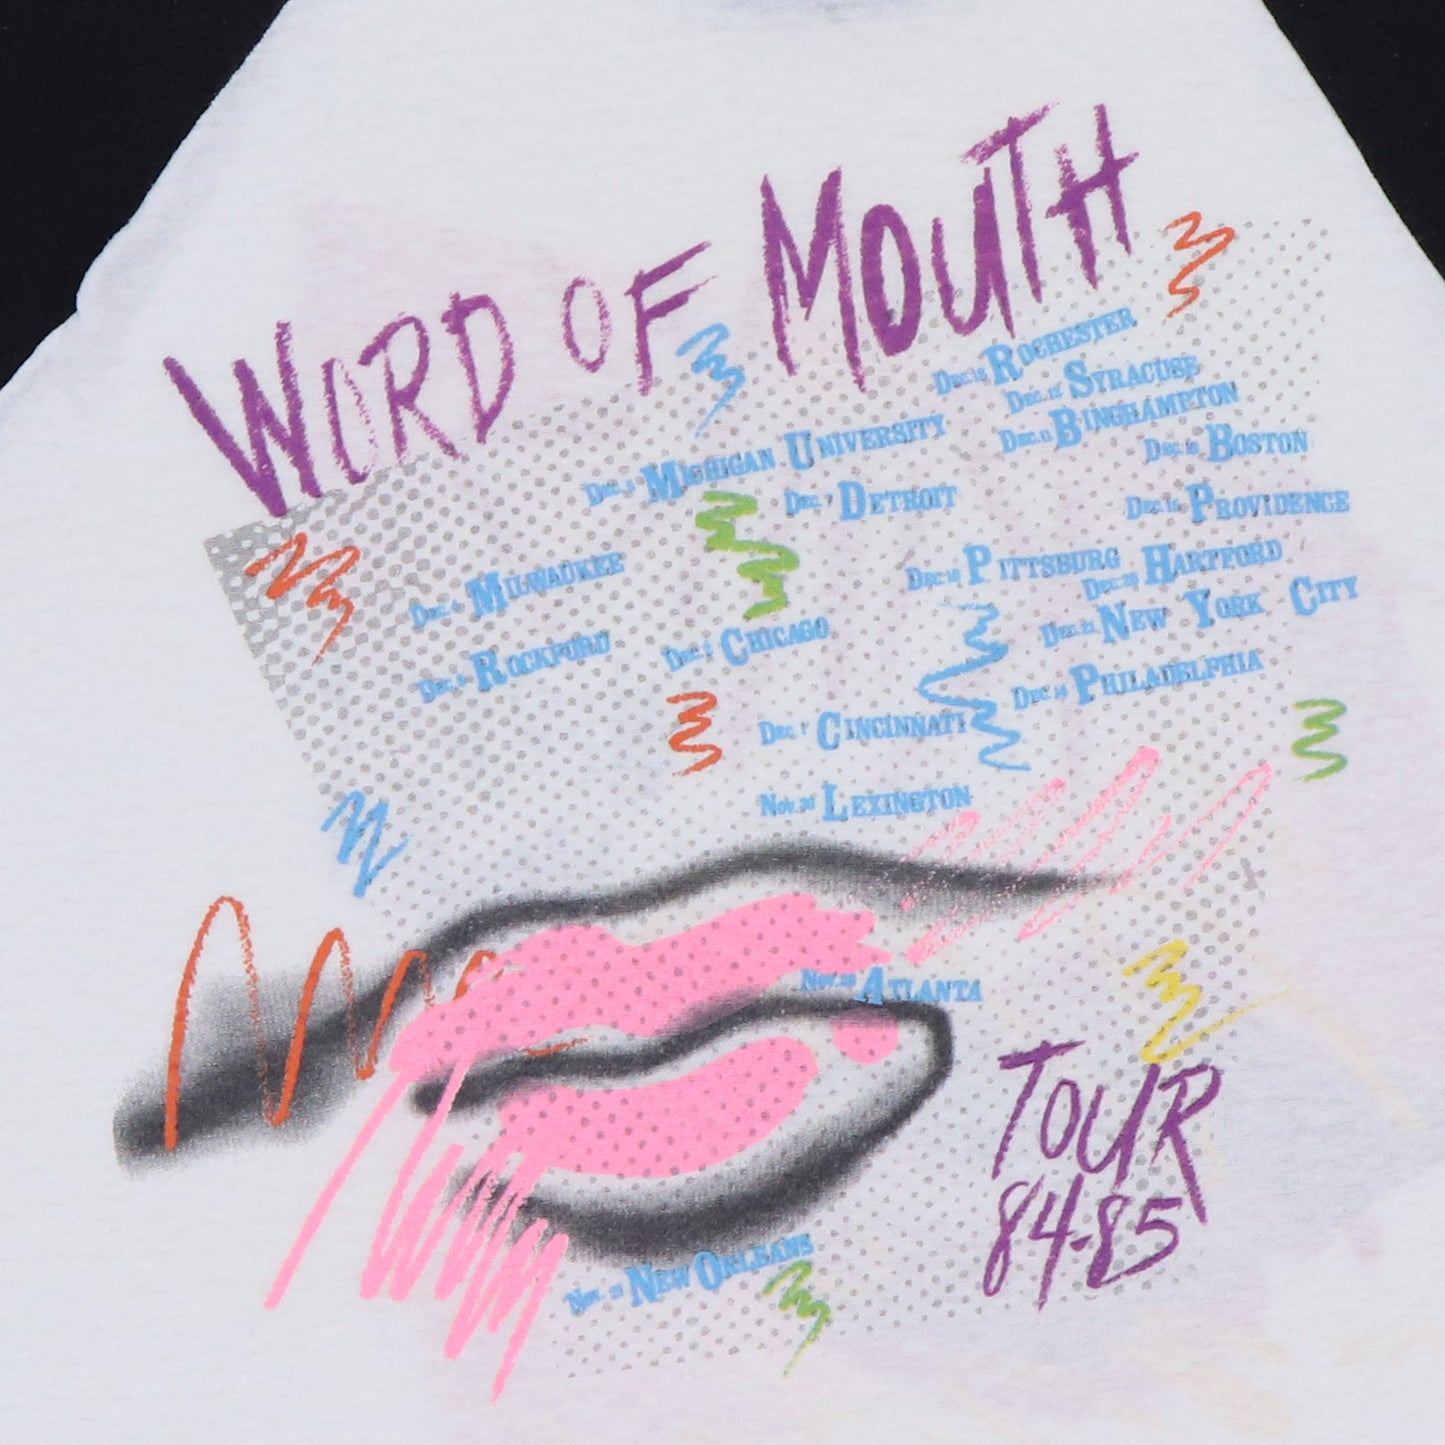 WORD OF MOUTH
ROCHESTER
DEC. 12 SYRACUSE
DEC. 11 BINGHAMPTON
DEC. MICHIGAN UNIVERSITY
BOSTON
DEC. 7 DETROIT
PROVIDENCE
DEC. MILWAUKEE
PITTSBURG
DEC. 20 HARTFORD
DEC. 21 NEW YORK CITY
DEC. CHICAGO
DEC. ROCKFORD
DEC. PHILADELPHIA
DEC. CINCINNATI
NOV. LEXINGTON
NOV. ATLANTA
TOUR
84-85
NOV. NEW ORLEANS